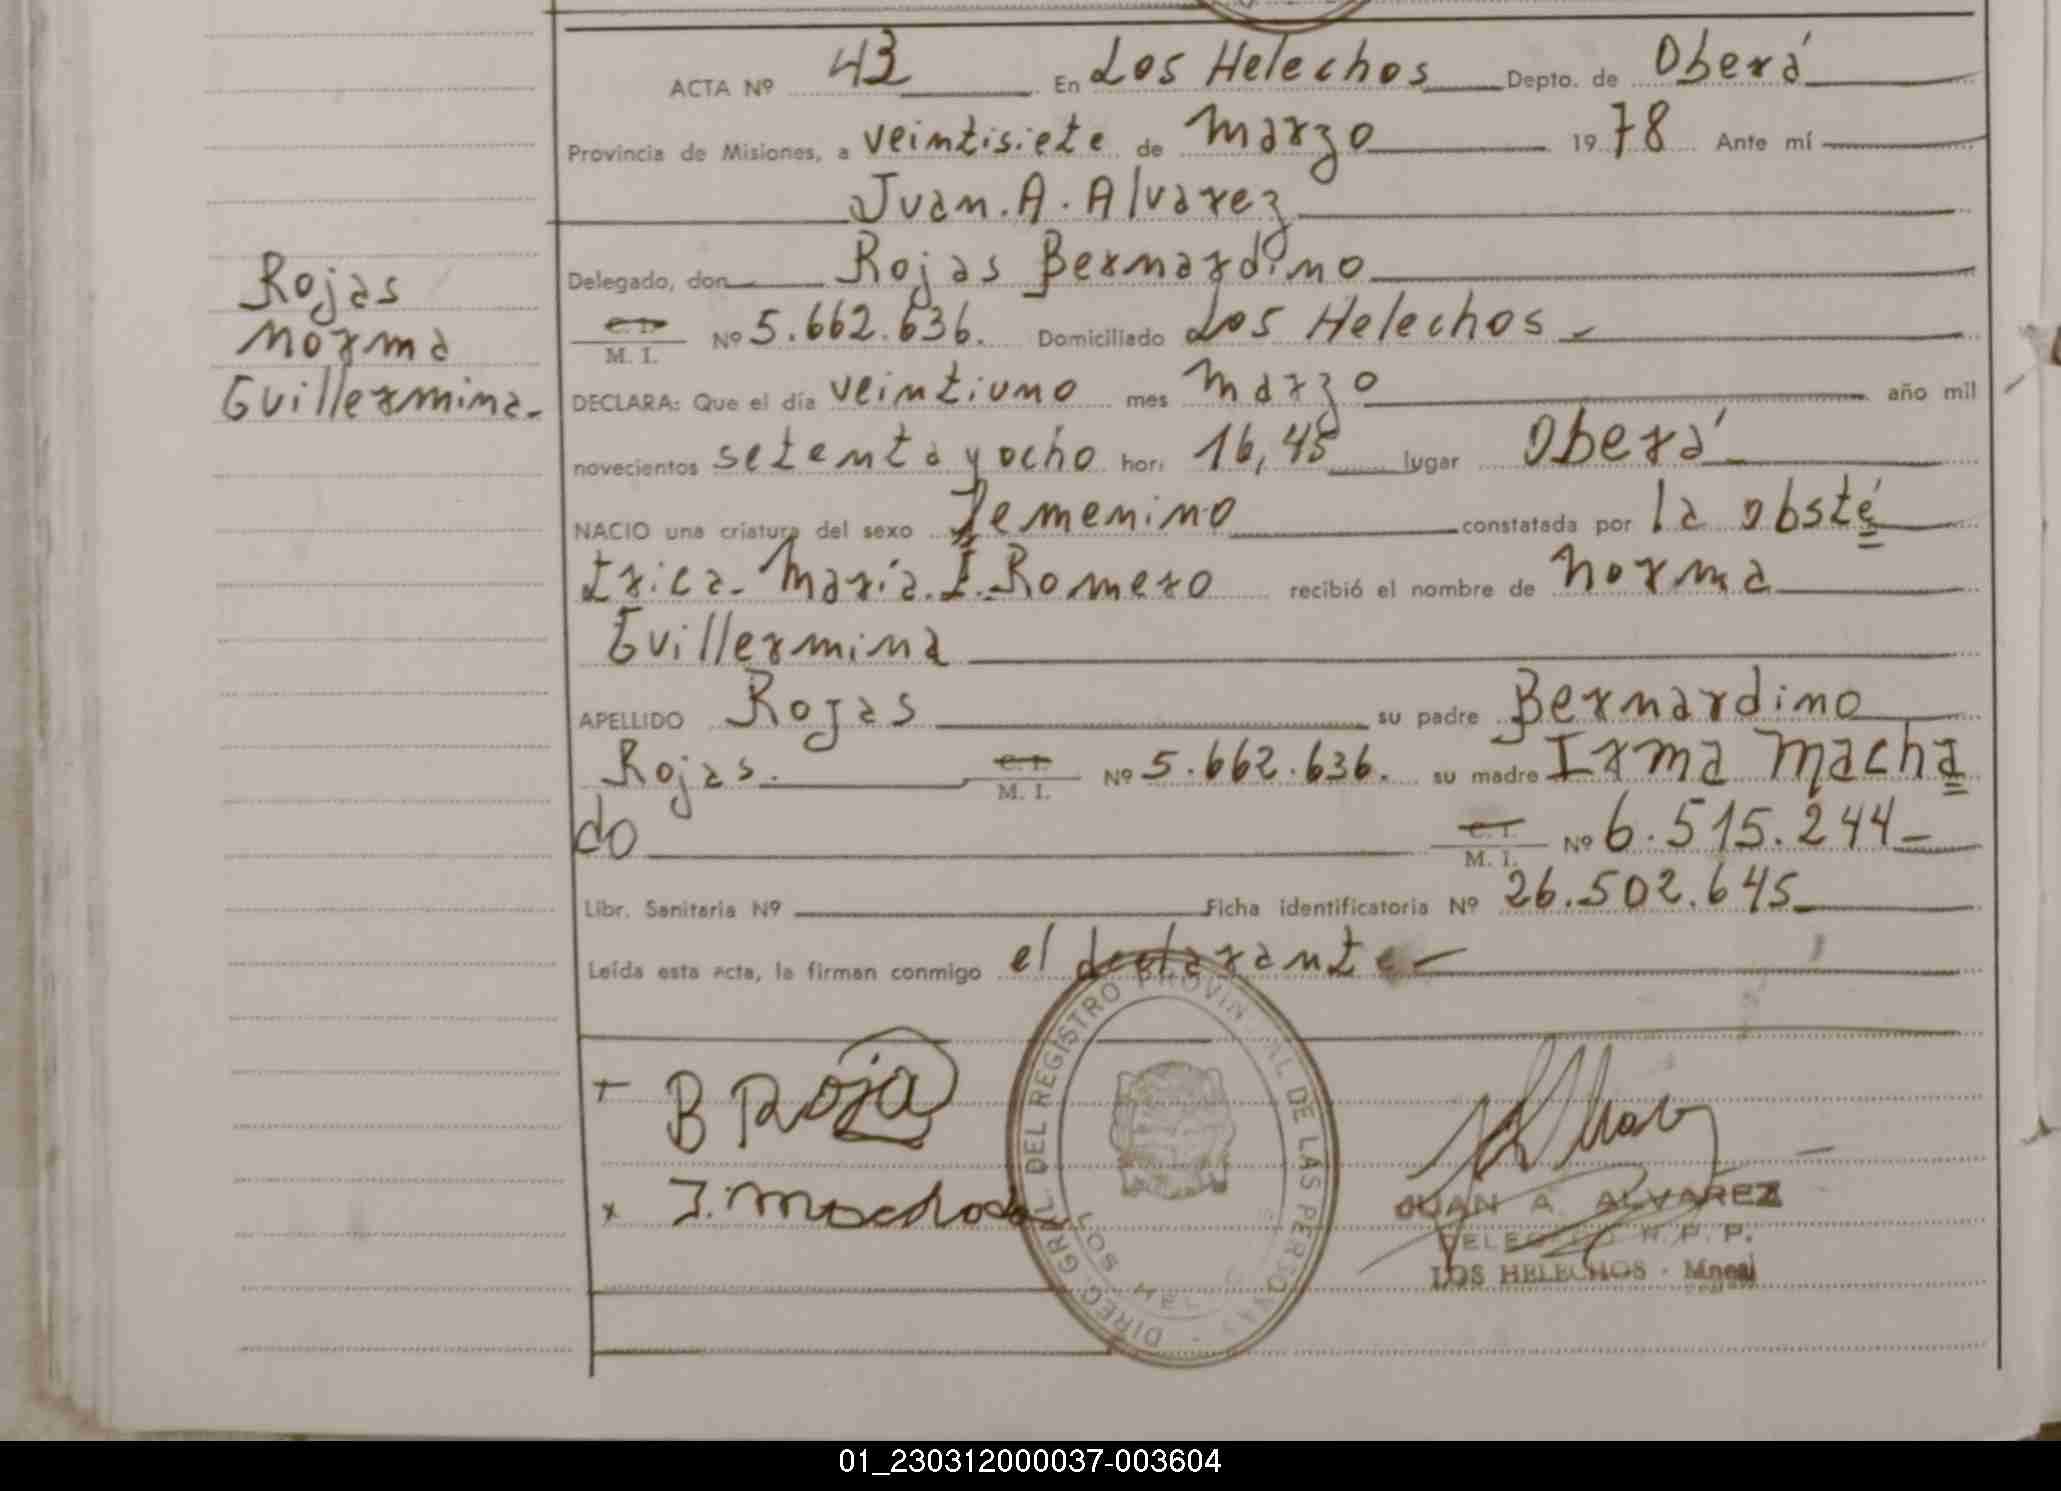 ACTA Nº 43 En Los Helechos Depto. de Oberá
Provincia de Misiones, a veintisiete de Marzo 1978 Ante mí
Juan. A. Alvarez
Delegado, don Rojas Bernardino
C. I.
M. I. Nº 5.662.636. Domiciliado Los Helechos
DECLARA: Que el día veintiuno mes Marzo año mil
novecientos setenta y ocho hor: 16,45 lugar Oberá
NACIO una criatura del sexo Femenino constatada por la obsté
trica- María.I.Romero recibió el nombre de Norma
Guillermina
APELLIDO Rojas su padre Bernardino
Rojas. C. I. M. I. Nº 5.662.636. su madre Irma Macha
do C. I. M. I. Nº 6.515.244
Libr. Sanitaria Nº Ficha identificatoria Nº 26.502.645
Leída esta Acta, la firman conmigo el declarante
Rojas
Norma
Guillermina-
+ B Roja
x I. Machado
DIREC. GRAL. DEL REGISTRO PROVINCIAL DE LAS PERSONAS
JUAN A. ALVAREZ
DELEGADO R. P. P.
LOS HELECHOS - Mnes
01_230312000037-003604